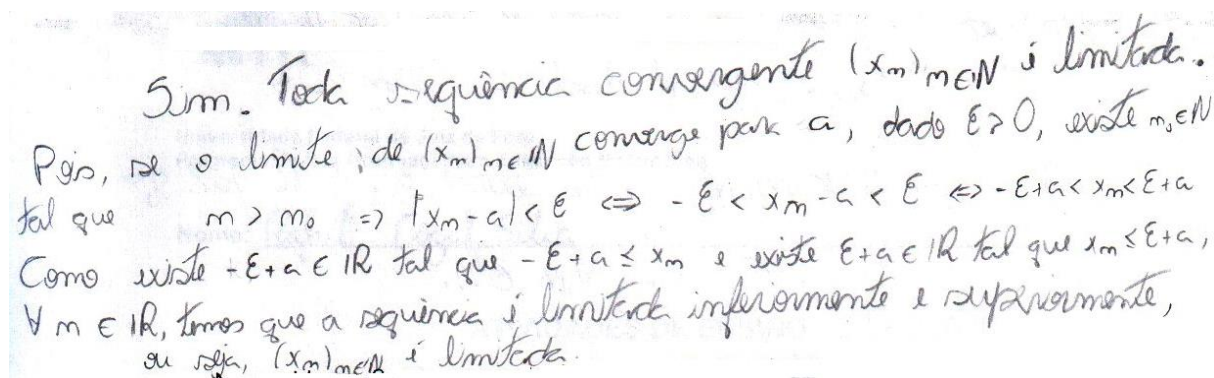 Sim. Toda sequência convergente (xₙ)ₙ∈ℕ é limitada.
Pois, se o limite, de (xₙ)ₙ∈ℕ converge para a, dado ε > 0, existe n₀ ∈ ℕ
tal que n > n₀ => |xₙ - a| < ε ⇔ - ε < xₙ - a < ε ⇔ - ε + a < xₙ < ε + a
Como existe - ε + a ∈ ℝ tal que - ε + a ≤ xₙ e existe ε + a ∈ ℝ tal que xₙ ≤ ε + a,
∀ n ∈ ℝ, temos que a sequência é limitada inferiormente e superiormente,
ou seja, (xₙ)ₙ∈ℕ é limitada.